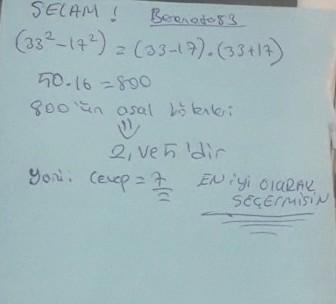 SELAM ! Beenato83
(33²-17²) = (33-17).(33+17)
50.16=800
800'ün asal bölenleri
⇓
2, ve 5'dir
Yani: Cevap = 7
EN iyi OLARAK
SEÇERMİSİN